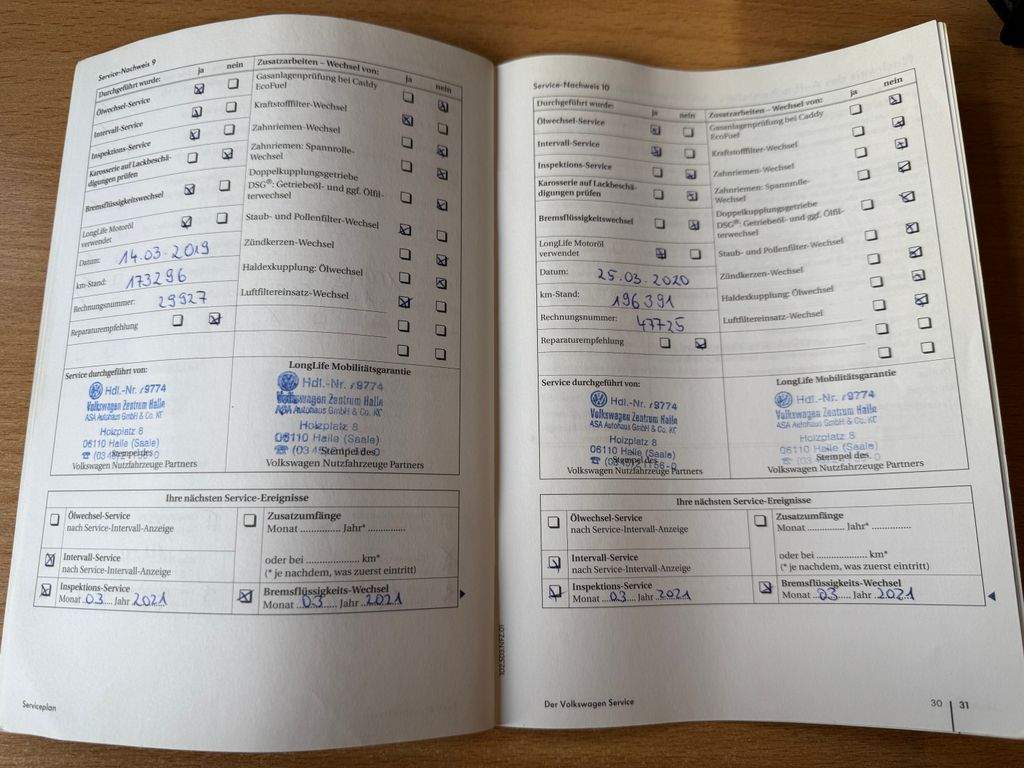 Service-Nachweis 9
Durchgeführt wurde: ja nein
Ölwechsel-Service
Intervall-Service
Inspektions-Service
Karosserie auf Lackbeschä-
digungen prüfen
Bremsflüssigkeitswechsel
LongLife Motoröl
verwendet
Datum: 14.03.2019
km-Stand: 173296
Rechnungsnummer: 29927
Reparaturempfehlung
Zusatzarbeiten – Wechsel von: ja nein
Gasanlagenprüfung bei Caddy
EcoFuel
Kraftstofffilter-Wechsel
Zahnriemen-Wechsel
Zahnriemen: Spannrolle-
Wechsel
Doppelkupplungsgetriebe
DSG®: Getriebeöl- und ggf. Ölfil-
terwechsel
Staub- und Pollenfilter-Wechsel
Zündkerzen-Wechsel
Haldexkupplung: Ölwechsel
Luftfiltereinsatz-Wechsel
Service durchgeführt von:
Hdl.-Nr. 29774
Volkswagen Zentrum Halle
ASA Autohaus GmbH & Co. KG
Holzplatz 8
06110 Halle (Saale)
Stempel des
Volkswagen Nutzfahrzeuge Partners
LongLife Mobilitätsgarantie
Hdl.-Nr. 29774
Volkswagen Zentrum Halle
ASA Autohaus GmbH & Co. KG
Holzplatz 8
06110 Halle (Saale)
Stempel des
Volkswagen Nutzfahrzeuge Partners
Ihre nächsten Service-Ereignisse
Ölwechsel-Service
nach Service-Intervall-Anzeige
Intervall-Service
nach Service-Intervall-Anzeige
Inspektions-Service
Monat ..03.... Jahr 2021
Zusatzumfänge
Monat ............ Jahr* ...............
oder bei ................ km*
(* je nachdem, was zuerst eintritt)
Bremsflüssigkeits-Wechsel
Monat ..03..... Jahr ..2021
Serviceplan
102.5G3.NFZ.01
Service-Nachweis 10
Durchgeführt wurde: ja nein
Ölwechsel-Service
Intervall-Service
Inspektions-Service
Karosserie auf Lackbeschä-
digungen prüfen
Bremsflüssigkeitswechsel
LongLife Motoröl
verwendet
Datum: 25.03.2020
km-Stand: 196391
Rechnungsnummer: 47725
Reparaturempfehlung
Zusatzarbeiten – Wechsel von: ja nein
Gasanlagenprüfung bei Caddy
EcoFuel
Kraftstofffilter-Wechsel
Zahnriemen-Wechsel
Zahnriemen: Spannrolle-
Wechsel
Doppelkupplungsgetriebe
DSG®: Getriebeöl- und ggf. Ölfil-
terwechsel
Staub- und Pollenfilter-Wechsel
Zündkerzen-Wechsel
Haldexkupplung: Ölwechsel
Luftfiltereinsatz-Wechsel
Service durchgeführt von:
Hdl.-Nr. 29774
Volkswagen Zentrum Halle
ASA Autohaus GmbH & Co. KG
Holzplatz 8
06110 Halle (Saale)
Stempel des
Volkswagen Nutzfahrzeuge Partners
LongLife Mobilitätsgarantie
Hdl.-Nr. 29774
Volkswagen Zentrum Halle
ASA Autohaus GmbH & Co. KG
Holzplatz 8
06110 Halle (Saale)
Stempel des
Volkswagen Nutzfahrzeuge Partners
Ihre nächsten Service-Ereignisse
Ölwechsel-Service
nach Service-Intervall-Anzeige
Intervall-Service
nach Service-Intervall-Anzeige
Inspektions-Service
Monat ...03.... Jahr .2021
Zusatzumfänge
Monat ............ Jahr* ...............
oder bei ................ km*
(* je nachdem, was zuerst eintritt)
Bremsflüssigkeits-Wechsel
Monat ...03..... Jahr ..2021
Der Volkswagen Service
30 31